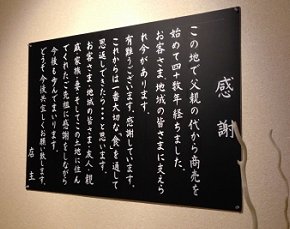 感謝
この地で父親の代から商売を
始めて四十数年経ちました。
お客さま・地域の皆さまに支えら
れ今があります。
有難うございます。感謝しています。
これからは一番大切な、食を通して
恩返しできたら・・・と思います。
お客さま・地域の皆さま・友人・親
戚家族・妻・そしてこの土地に住ん
でくれたご先祖に感謝をしながら
今後も歩んでまいります。
どうぞ今後共宜しくお願い致します。
店主